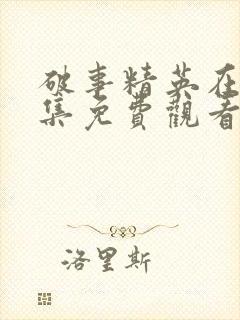 破事精英在
集免費觀看
洛里斯